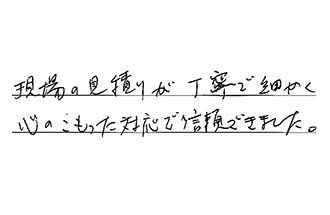 現場の見積りが丁寧で細かく
心のこもった対応で信頼できました。